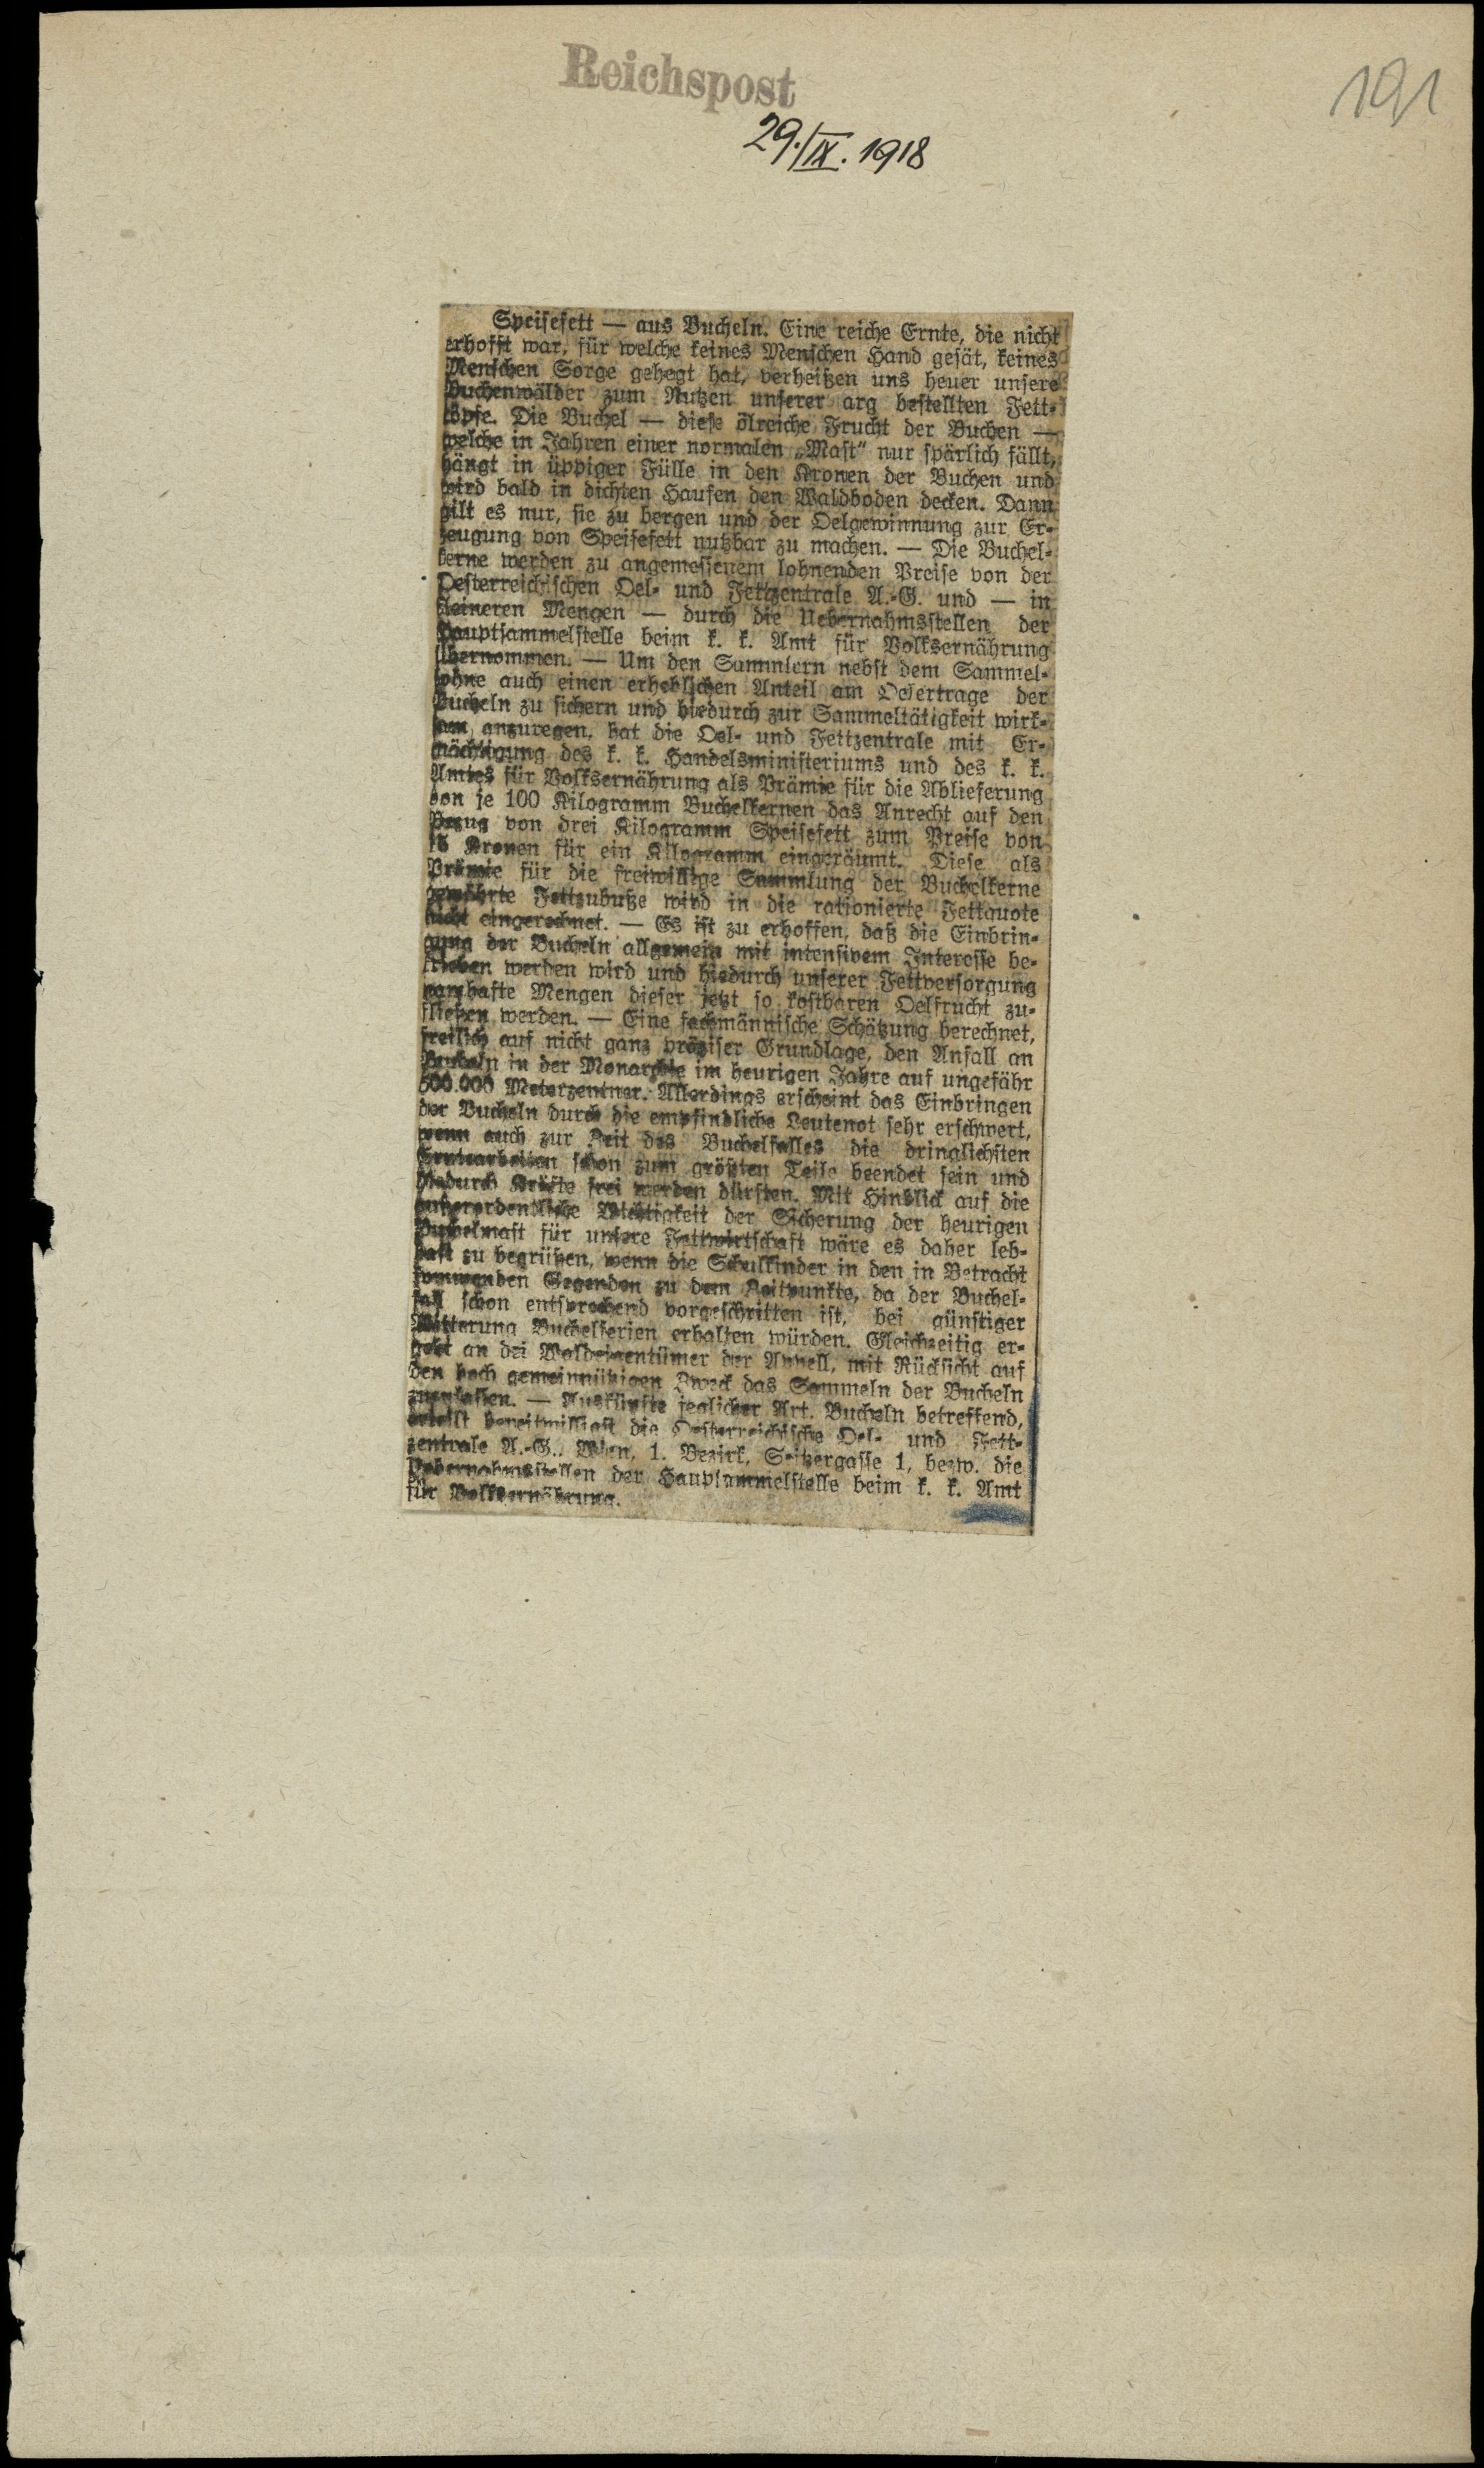 Reichspost
191
29./IX. 1918
Speisefett — aus Bucheln. Eine reiche Ernte, die nicht
erhofft war, für welche keines Menschen Hand gesät, keines
Menschen Sorge gehegt hat, verheißen uns heuer unsere
Buchenwälder zum Nutzen unserer arg bestellten Fett-
töpfe. Die Buchel — diese ölreiche Frucht der Buchen —
welche in Jahren einer normalen „Mast“ nur spärlich fällt,
hängt in üppiger Fülle in den Kronen der Buchen und
wird bald in dichten Haufen den Waldboden decken. Dann
gilt es nur, sie zu bergen und der Oelgewinnung zur Er-
zeugung von Speisefett nutzbar zu machen. — Die Buchel-
kerne werden zu angemessenem lohnenden Preise von der
Oesterreichischen Oel- und Fettzentrale A.-G. und — in
kleineren Mengen — durch die Uebernahmsstellen der
Hauptsammelstelle beim k. k. Amt für Volksernährung
übernommen. — Um den Sammlern nebst dem Sammel-
lohne auch einen erheblichen Anteil am Oelertrage der
Bucheln zu sichern und hiedurch zur Sammeltätigkeit wirk-
sam anzuregen, hat die Oel- und Fettzentrale mit Er-
mächtigung des k. k. Handelsministeriums und des k. k.
Amtes für Volksernährung als Prämie für die Ablieferung
von je 100 Kilogramm Buchelkernen das Anrecht auf den
Bezug von drei Kilogramm Speisefett zum Preise von
Kronen für ein Kilogramm eingeräumt. Diese als
Prämie für die freiwillige Sammlung der Buchelkerne
gewährte Fettzubuße wird in die rationierte Fettquote
nicht eingerechnet. — Es ist zu erhoffen, daß die Einbrin-
gung der Bucheln allgemein mit intensivem Interesse be-
trieben werden wird und hiedurch unserer Fettversorgung
namhafte Mengen dieser jetzt so kostbaren Oelfrucht zu-
fließen werden. — Eine fachmännische Schätzung berechnet,
freilich auf nicht ganz präziser Grundlage, den Anfall an
Bucheln in der Monarchie im heurigen Jahre auf ungefähr
500.000 Meterzentner. Allerdings erscheint das Einbringen
der Bucheln durch die empfindliche Leutenot sehr erschwert,
wenn auch zur Zeit des Buchelfalles die dringlichsten
Erntearbeiten schon zum größten Teile beendet sein und
hiedurch Kräfte frei werden dürften. Mit Hinblick auf die
außerordentliche Wichtigkeit der Sicherung der heurigen
Buchelmast für unsere Fettwirtschaft wäre es daher leb-
haft zu begrüßen, wenn die Schulkinder in den in Betracht
kommenden Gegenden zu dem Zeitpunkte, da der Buchel-
fall schon entsprechend vorgeschritten ist, bei günstiger
Witterung Buchelferien erhalten würden. Gleichzeitig er-
geht an dei Waldeigentümer der Appell, mit Rücksicht auf
den hoch gemeinnützigen Zweck das Sammeln der Bucheln
zuzulassen. — Auskünfte jeglicher Art, Bucheln betreffend,
erteilt bereitwilligst die Oesterreichische Oel- und Fett-
zentrale A.-G., Wien, 1. Bezirk, Seitzergasse 1, bezw. die
Uebernahmsstellen der Hauptsammelstelle beim k. k. Amt
für Volksernährung.